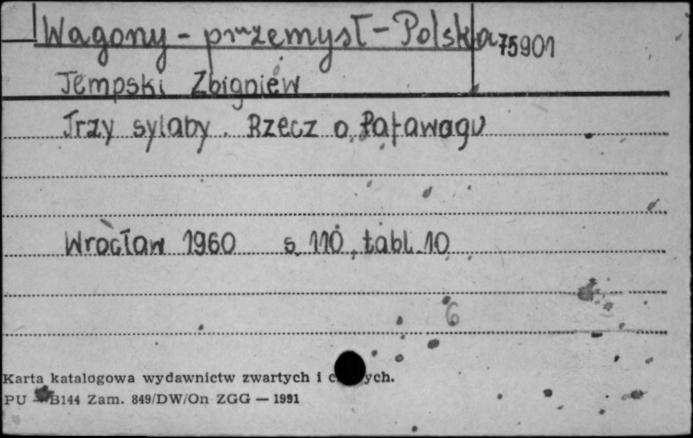 Wagony - przemysł - Polska 75901
Tempski Zbigniew
Trzy sylaby. Rzecz o Pafawagu
Wrocław 1960 s. 110, tabl. 10
6
Karta katalogowa wydawnictw zwartych i ych.
PU B144 Zam. 849/DW/On ZGG — 1991